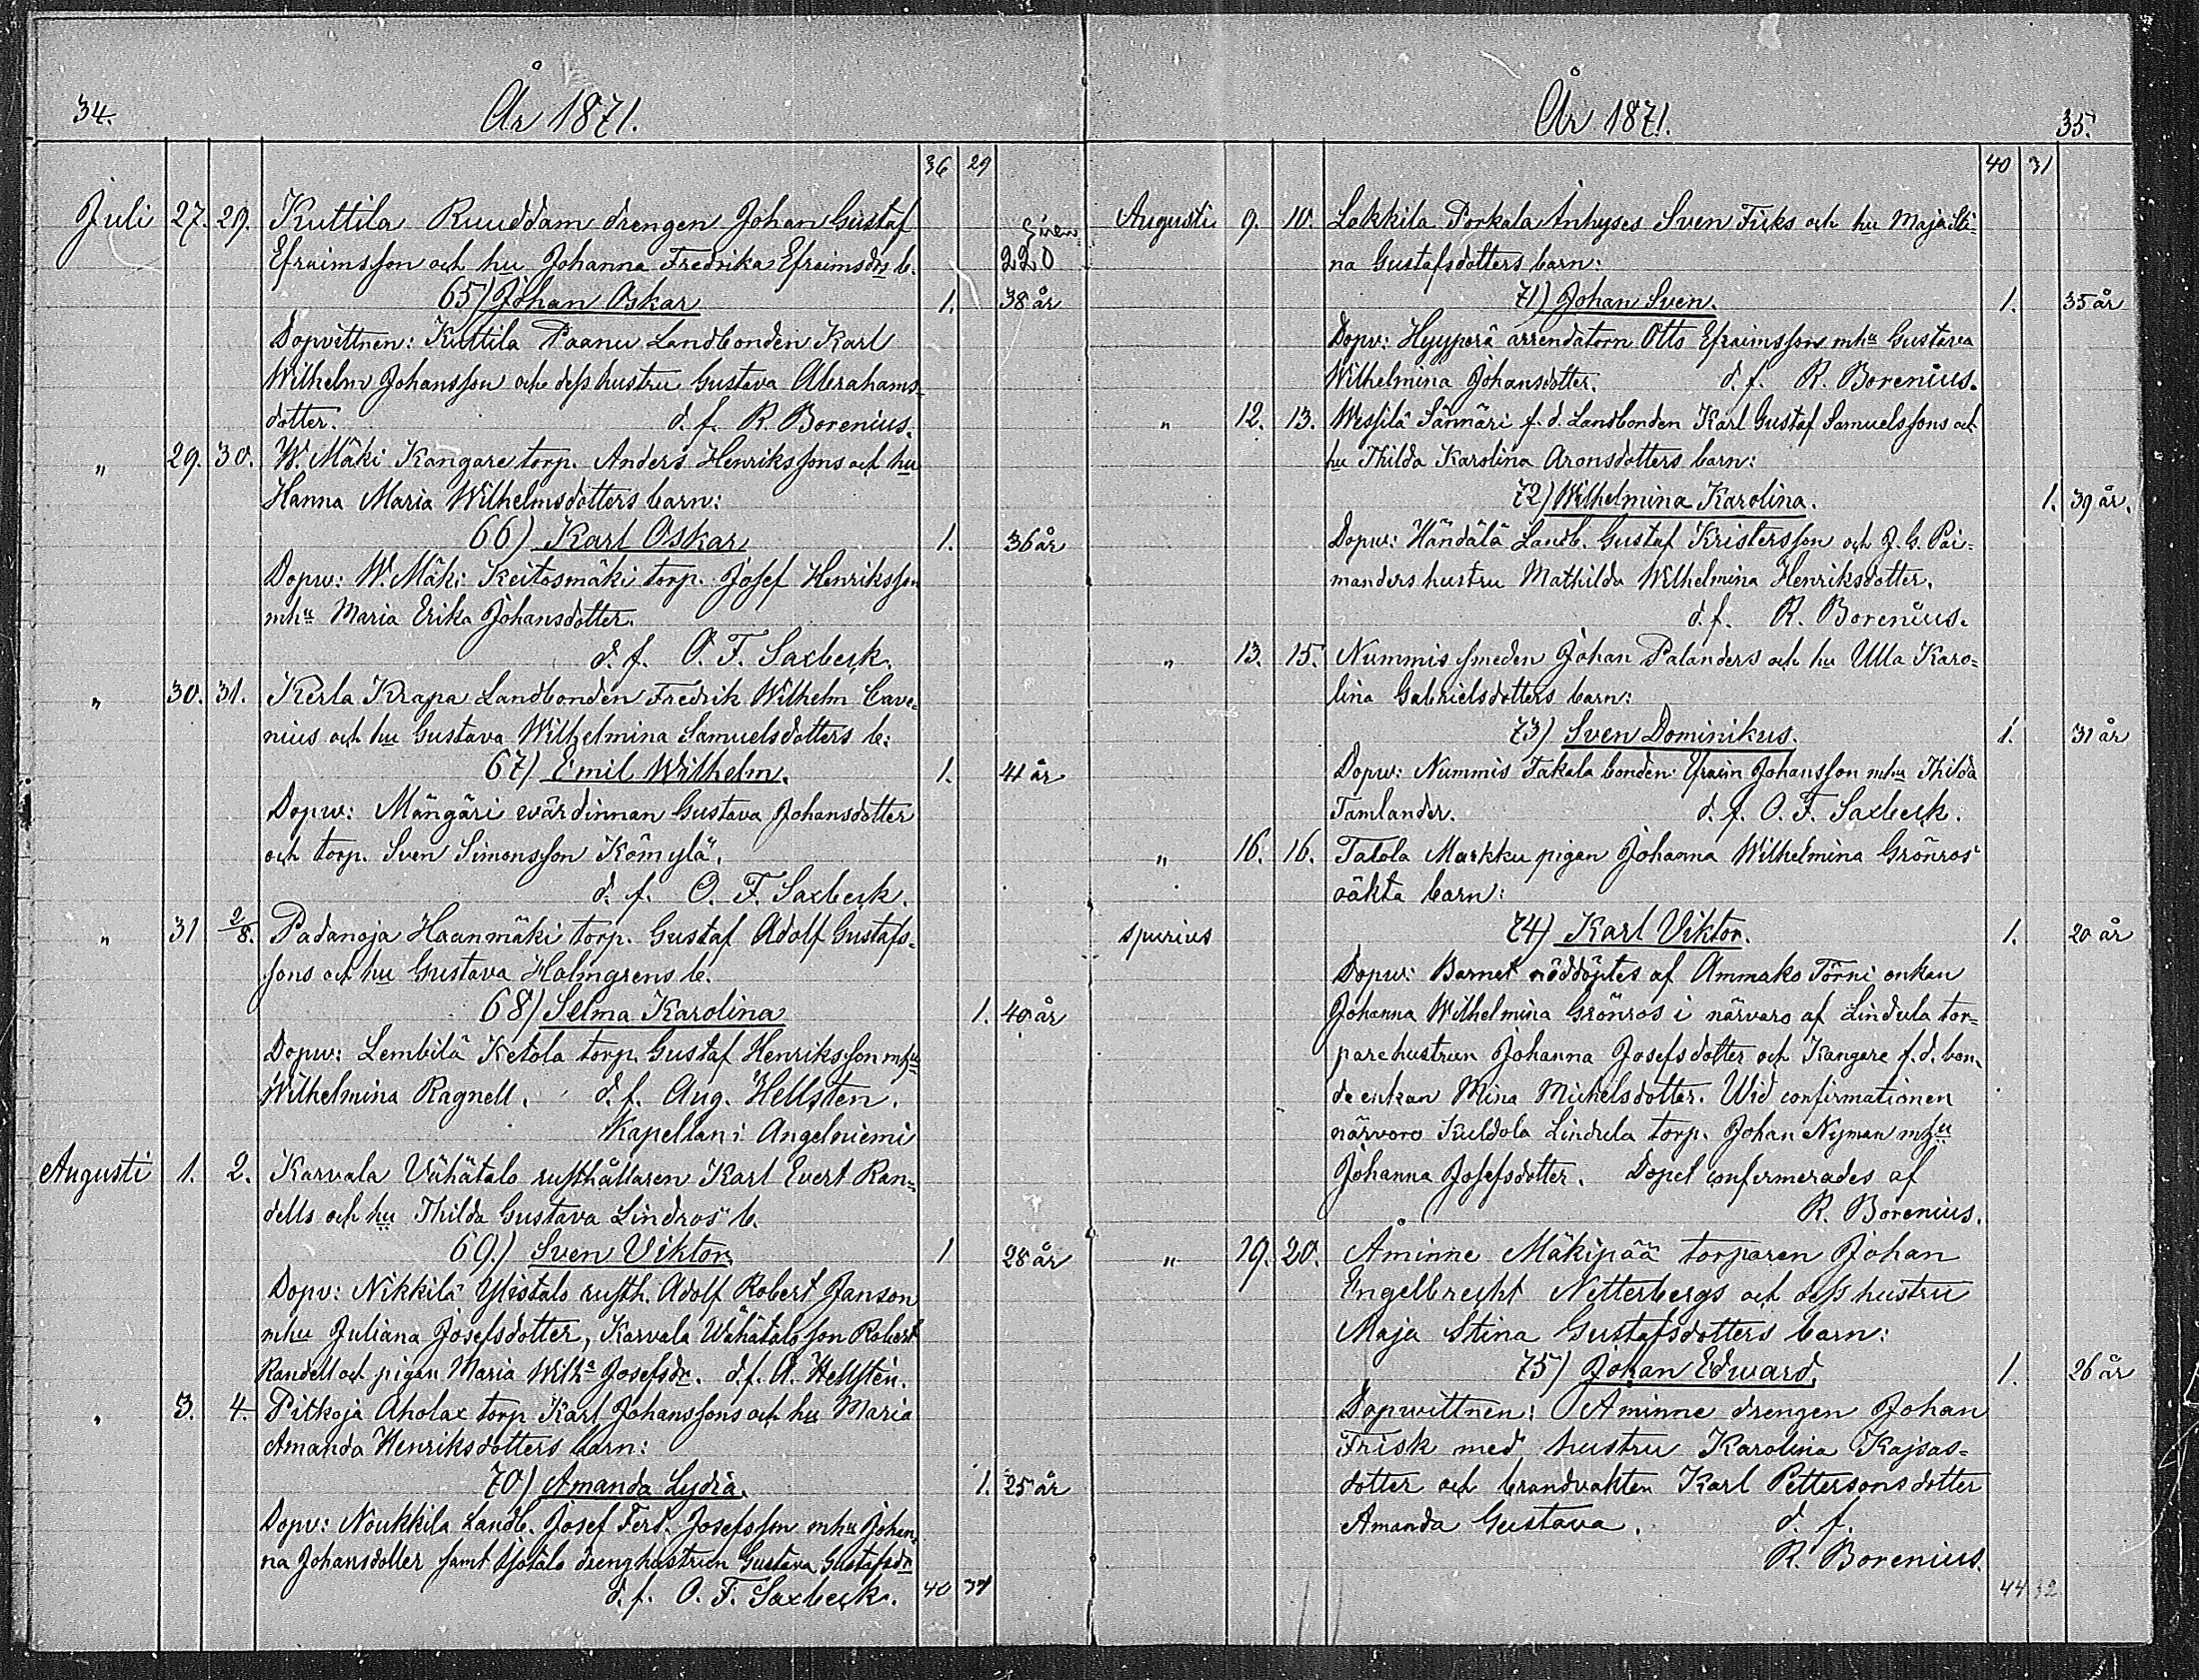 34.
År 1871.
36 29
Juli 27. 29. Kuttila Ruuddam drengen Johan Gustaf
Efraimsson och hu Johanna Fredrika Efraimsdrs b. 220
65) Johan Oskar 1. 38 år
Dopvittnen: Kuttila Paanu Landbonden Karl
Wilhelm Johansson och dess hustru Gustava Abrahams-
dotter. d. f. R. Borenius.
" 29. 30. W. Mäki Kangare torp. Anders Henrikssons och hu
Hanna Maria Wilhelmsdotters barn:
66) Karl Oskar 1. 36 år
Dopw: W. Mäki Keitosmäki torp. Josef Henriksson
mhu Maria Erika Johansdotter.
d. f. O. F. Saxbeck.
" 30. 31. Kerla Krapa Landbonden Fredrik Wilhelm Cave-
nius och hu Gustava Wilhelmina Samuelsdotters b:
67) Emil Wilhelm. 1. 41 år
Dopw: Mängäri wärdinnan Gustava Johansdotter
och torp. Sven Simonsson Kömylä.
d. f. O. F. Saxbeck.
" 31 2/8. Padanoja Haanmäki torp. Gustaf Adolf Gustafs-
sons och hu Gustava Holmgrens b.
68) Selma Karolina 1. 40 år
Dopw: Lembilä Ketola torp. Gustaf Henriksson mhu
Wilhelmina Ragnell. d. f. Aug. Hellsten.
Kapellan i Angelniemi
Augusti 1. 2. Karvala Vähätalo rusthållaren Karl Evert Ran-
dells och hu Thilda Gustava Lindros b.
69.) Sven Viktor 1 28 år
Dopv: Nikkilä Ylistalo rusth. Adolf Robert Janson
mhu Juliana Josefsdotter, Karvala Wähätalo son Robert
Randell och pigan Maria Wilha Josefsdr. d. f. A. Hellsten.
" 3. 4. Pitkoja Aholax torp Karl Johanssons och hu Maria
Amanda Henriksdotters barn:
70) Amanda Lydia. 1. 25 år
Dopv: Noukkila Landb. Josef Ferd. Josefsson mhu Johan-
na Johansdotter samt drenghustrun Gustava Gustafsdr
d. f. O. F. Saxbeck. 40 31
År 1871.
35.
40 31
Augusti 9. 10. Lakkila Porkala Inhyses Sven Fisks och hu Maja Sti-
na Gustafsdotters barn:
71) Johan Sven. 1. 35 år
Dopv: Hyyperä arrendatorn Otto Efraimsson mhu Gustava
Wilhelmina Johansdotter. d. f. R. Borenius.
" 12. 13. Wessilä Sännäri f. d. Landbonden Karl Gustaf Samuelssons och
hu Thilda Karolina Aronsdotters barn:
72) Wilhelmina Karolina. 1. 39 år.
Dopw: Händälä Landb. Gustaf Kristersson och J. G. Pai-
manders hustru Mathilda Wilhelmina Henriksdotter.
d. f. R. Borenius.
" 13. 15. Nummis smeden Johan Palanders och hu Ulla Karo-
lina Gabrielsdotters barn:
73) Sven Dominikus. 1. 31 år
Dopw: Nummis Takala bonden Efraim Johansson mhu Thilda
Tamlander. d. f. O. F. Saxbeck.
" 16. 16. Talola Markku pigan Johanna Wilhelmina Grönros
oäkta barn:
spurius 74) Karl Viktor. 1. 20 år
Dopw: Barnet nöddöptes af Ammako Törni enkan
Johanna Wilhelmina Grönros i närvaro af Lindula tor-
parehustrun Johanna Josefsdotter och Kangare f. d. bon-
de enkan Mina Michelsdotter. Wid confirmationen
närvoro Kuldola Lindula torp. Johan Nyman mhu
Johanna Josefsdotter. Dopet confirmerades af
R. Borenius.
" 19. 20. Åminne Mäkipää torparen Johan
Engelbrecht Netterbergs och dess hustru
Maja Stina Gustafsdotters barn:
75) Johan Edward. 1. 26 år
Dopwittnen: Åminne drengen Johan
Frisk med hustru Karolina Kajsas-
dotter och brandvakten Karl Pettersons dotter
Amanda Gustava. d. f.
R. Borenius.
44 32